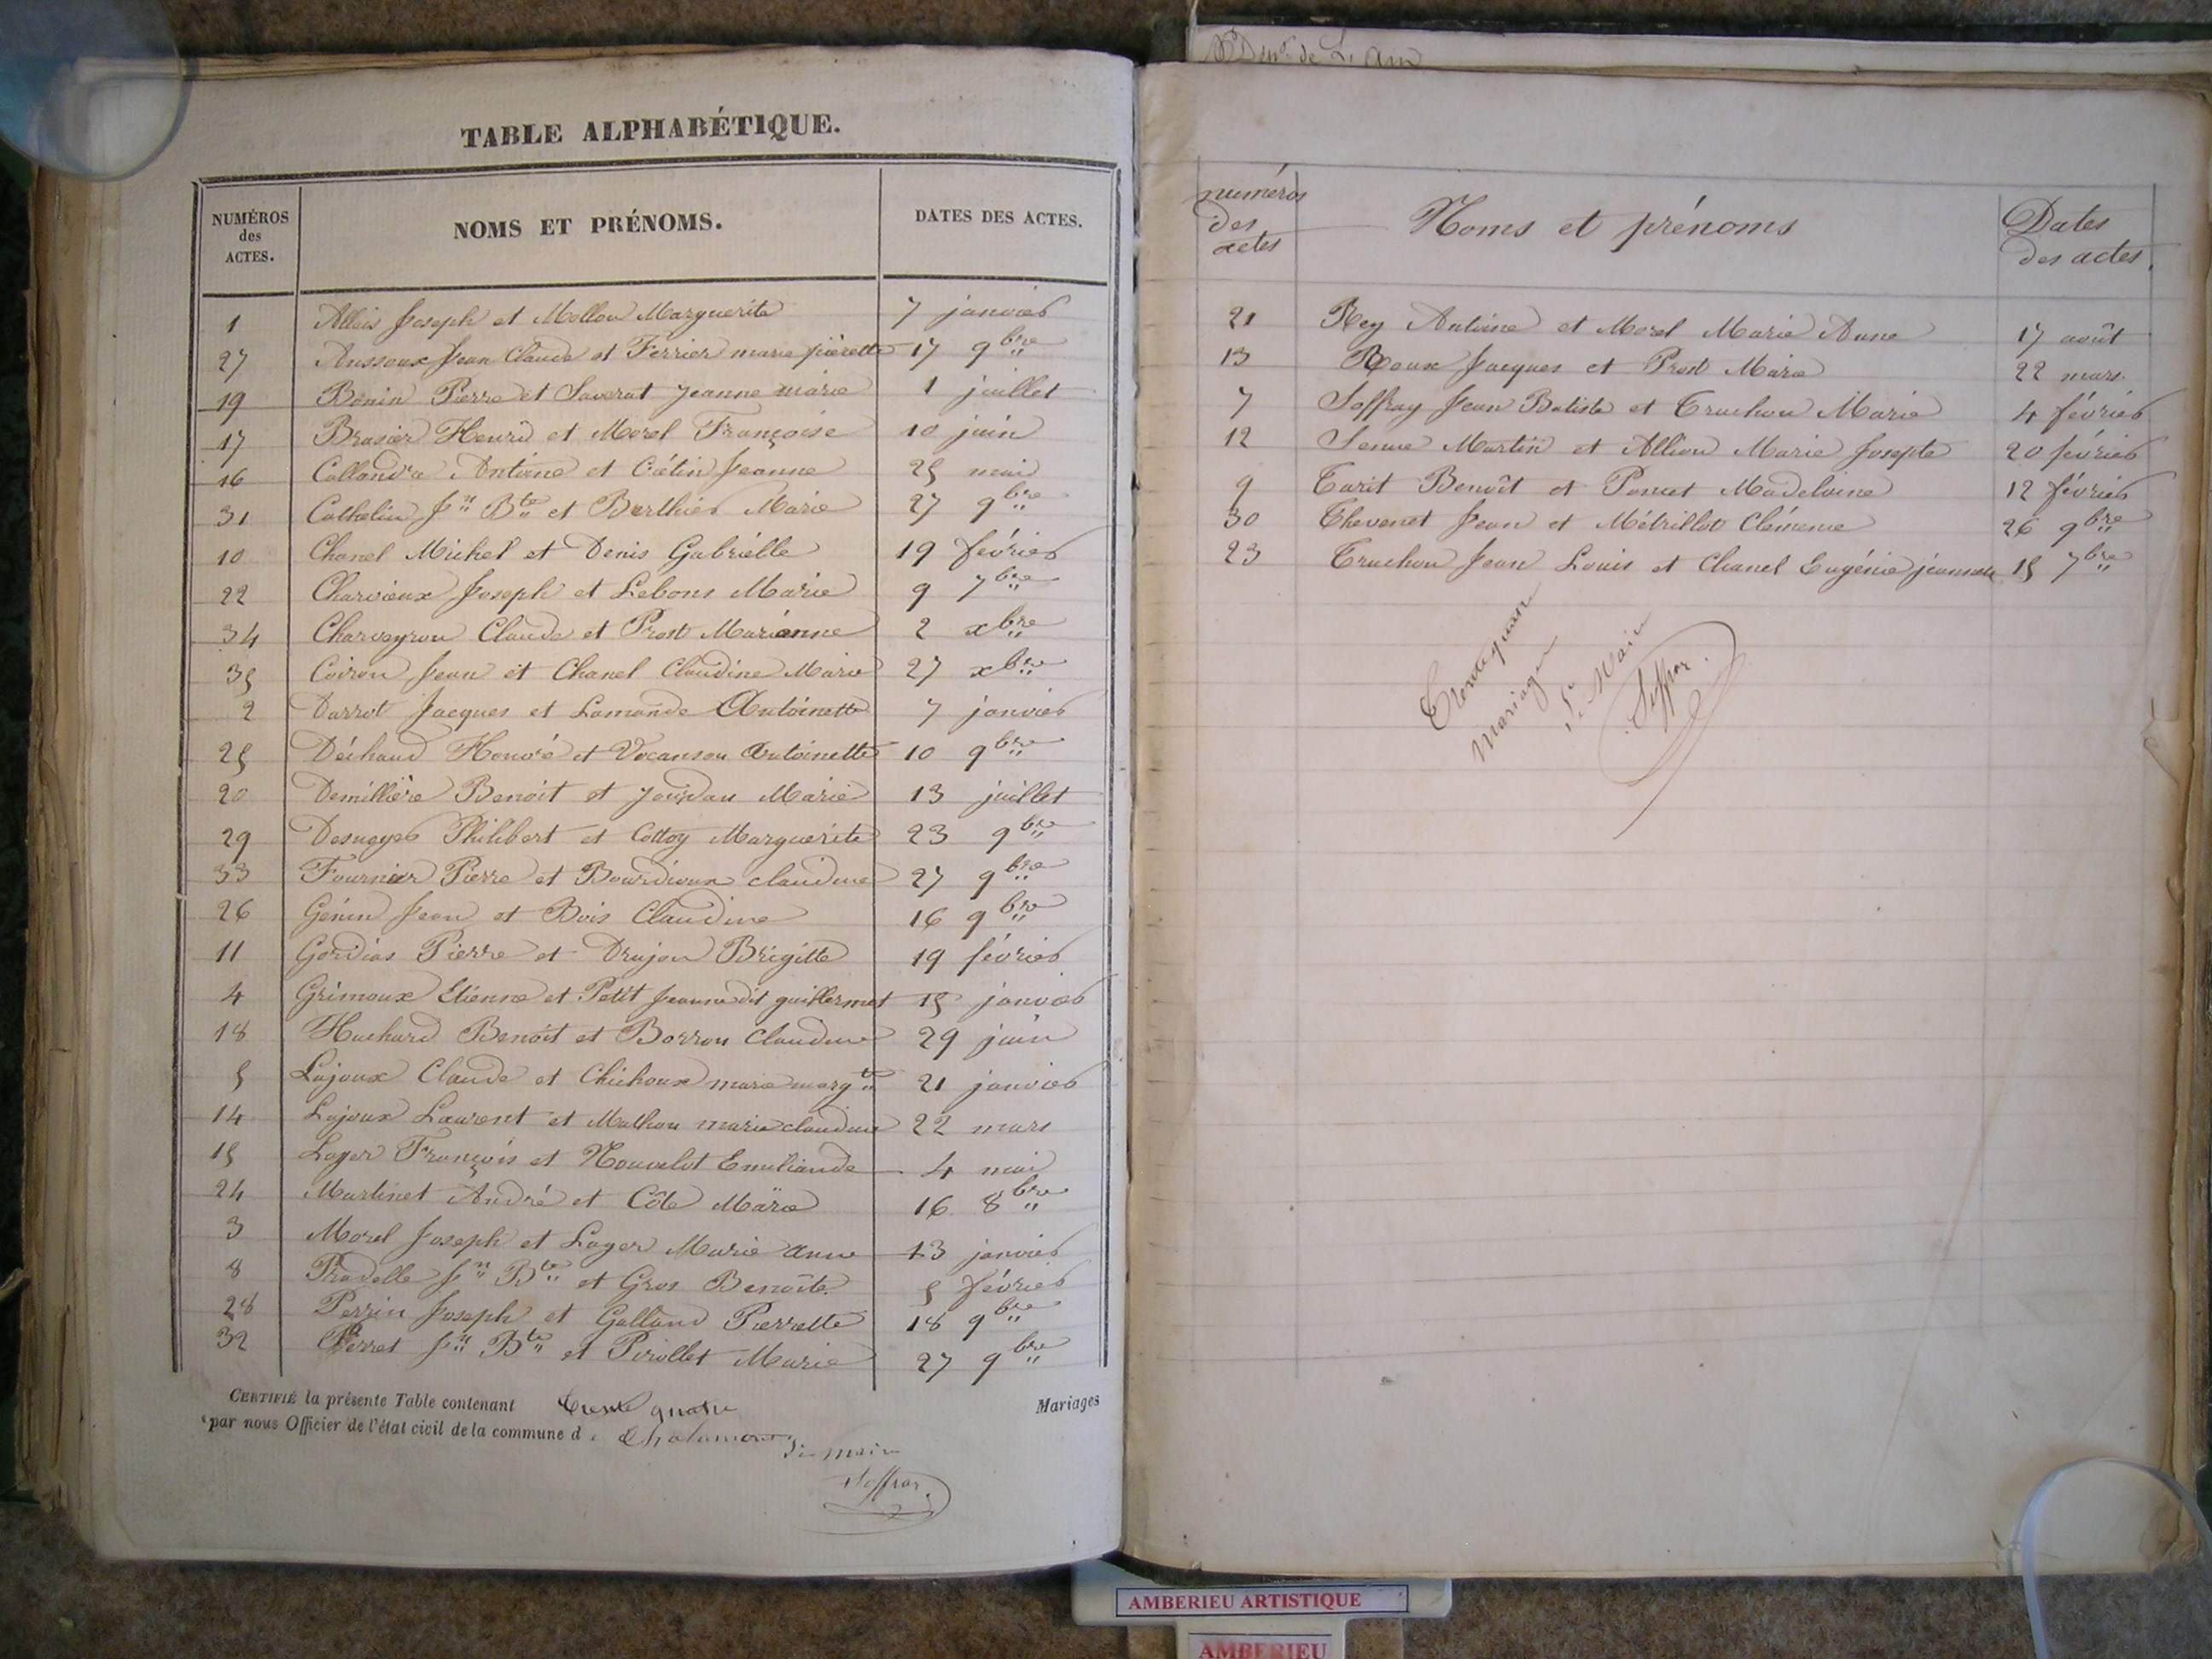 TABLE ALPHABÉTIQUE.
NUMÉROS
des
ACTES.
NOMS ET PRÉNOMS.
DATES DES ACTES.
1 Allois Joseph et Mollon Marguerite 7 janvier
27 Aussoux Jean Claude et Ferrier marie pierrette 17 9bre
19 Bonin Pierre et Saverat Jeanne marie 1 juillet
17 Brasier Henri et Morel Françoise 10 juin
16 Antoine et Jeanne 25 mai
31 Cathelin Jn Bte et Berthier Marie 27 9bre
10 Chanel Michel et Denis Gabrielle 19 février
22 Charvieux Joseph et Lebons Marie 9 7bre
34 Charveyron Claude et Prost Marianne 2 xbre
35 Coiron Jean et Chanel Claudine Marie 27 xbre
2 Darrot Jacques et Lamande Antoinette 7 janvier
25 Déchaud Honoré et Vocanson Antoinette 10 9bre
20 Demillère Benoit et Jourdan Marie 13 juillet
29 Desnoyer Philibert et Cottoy Marguerite 23 9bre
33 Fournier Pierre et Bourdioux claudine 27 9bre
26 Génin Jean et Bois Claudine 16 9bre
11 Gordias Pierre et Drujon Brigitte 19 février
4 Grimoux Etienne et Petit Jeanne dit guillermet 15 janvier
18 Huchard Benoit et Borron Claudine 29 juin
5 Lajoux Claude et Chichoux marie margte 21 janvier
14 Lajoux Laurent et Mathon marie claudine 22 mars
15 Loyer François et Nouvelot Emiliande 4 mai
24 Martinet André et Côte Marie 16 8bre
3 Morel Joseph et Loyer Marie anne 13 janvier
8 Pradelle Jn Bte et Gros Benoite 5 février
28 Perrin Joseph et Galland Pierrette 18 9bre
32 Perret Jn Bte et Pirollet Marie 27 9bre
CERTIFIÉ la présente Table contenant trente quatre Mariages
par nous Officier de l'état civil de la commune d e Chalamont
Le maire
Soffray
Dépt de L'Ain
numéros
des
actes
Noms et prénoms
Dates
des actes
21 Rey Antoine et Morel Marie Anne 17 août
13 Roux Jacques et Prost Marie 22 mars
7 Soffray Jean Batiste et Truchon Marie 4 février
12 Senne Martin et Allion Marie Josepte 20 février
9 Turit Benoît et Poncet Madelaine 12 février
30 Thevenet Jean et Métrillot Clémence 26 9bre
23 Truchon Jean Louis et Chanel Eugénie jeannette 15 7bre
Trente quatre
Mariages
Le Maire
Soffray
AMBERIEU ARTISTIQUE
AMBERIEU